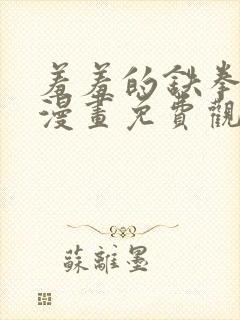 羞羞的鉄拳
漫畫免費觀
蘇離墨